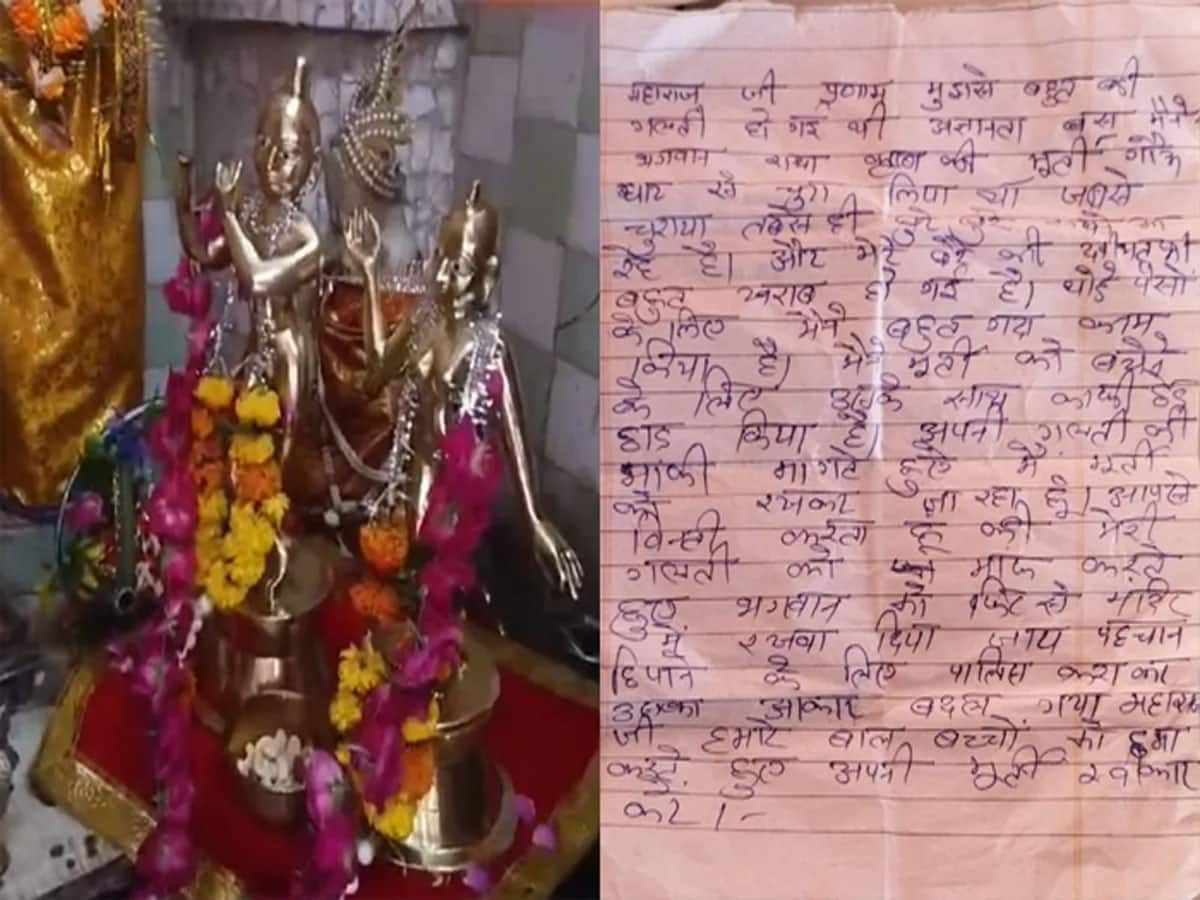 महाराज जी प्रणाम मुझसे बहुत बी
गलती हो गई थी अज्ञानता बस मैने
भगवान राधा कृष्ण की मूर्ती गौऊ
घाट से चुरा लिया था जबसे
चुराया तबसे ही बुरे बुरे
रहे है। और मेरे बेटे की तबीयत भी
बहुत खराब हो गई है। थोडे पैसो
के लिए मैने बहुत गंदा काम
किया है। मैने मूर्ती को बेचने
के लिए उसके साथ काफी छेड़
छाड़ किया है। अपनी गलती की
माफी मागते हुए मै मूर्ती
को रखकर जा रहा हूं। आपसे
विन्ती करता हू की मेरी
गलती को माफ करते
हुए भगवान को फिर से मंदिर
में रखवा दिया जाय पहचान
छिपाने के लिए पालिस कराकर
उसका आकार बदल गया महाराज
जी हमारे बाल बच्चों को क्षमा
करते हुए अपनी मूर्ती स्वीकार
करे।-